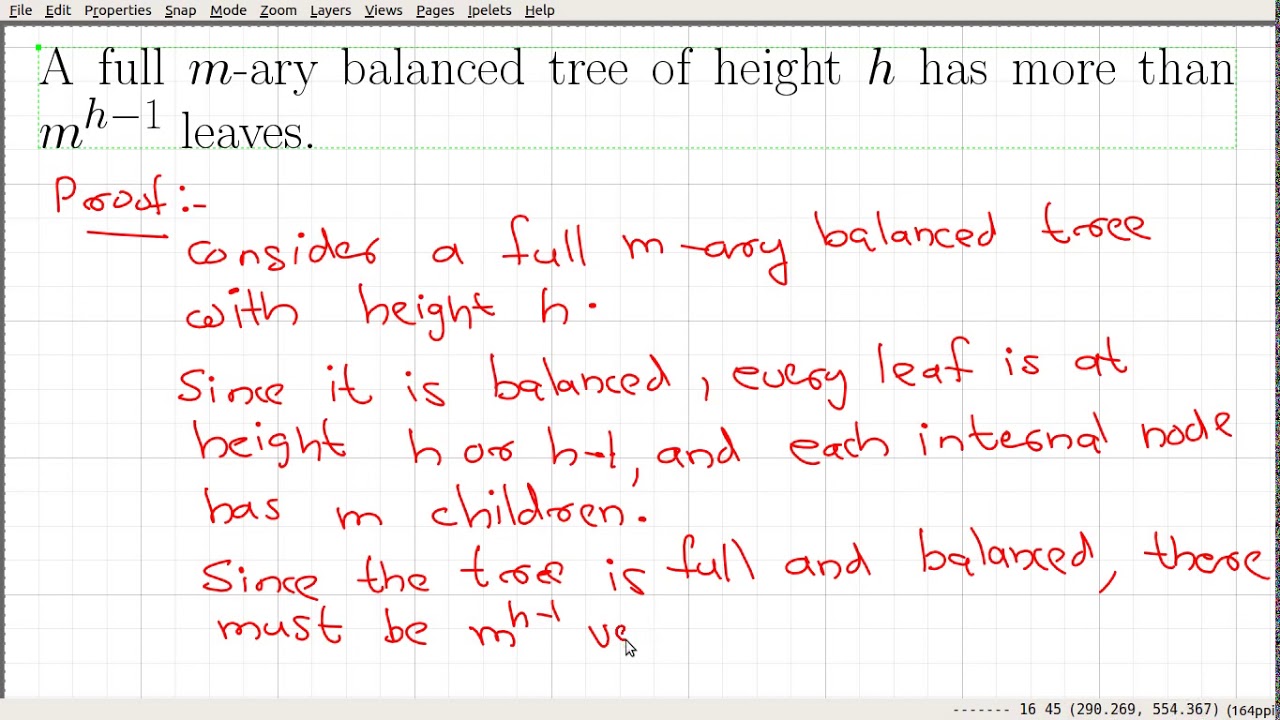 File Edit Properties Snap Mode Zoom Layers Views Pages Ipelets Help
A full m-ary balanced tree of height h has more than
m^{h-1} leaves.
Proof :-
consider a full m-ary balanced tree
with height h.
Since it is balanced, every leaf is at
height h or h-1, and each internal node
has m children.
Since the tree is full and balanced, there
must be m^{h-1} ve
------- 16 45 (290.269, 554.367) (164ppi